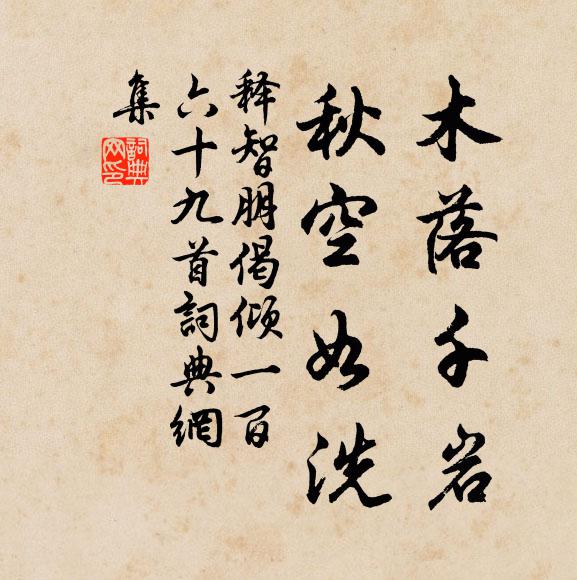 木落千岩
秋空如洗
释智朋偈倾一百
六十九首詞典網
集
詞典網印